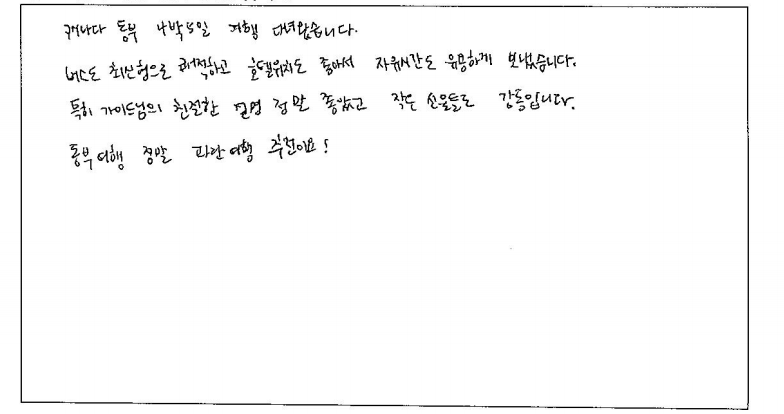 캐나다 동부 4박5일 여행 다녀왔습니다.
버스도 최신형으로 쾌적하고 호텔위치도 좋아서 자유시간도 유용하게 보냈습니다.
특히 가이드님의 친절한 설명 정말 좋았고 작은 선물들도 감동입니다.
동부여행 정말 파란여행 추천이요!